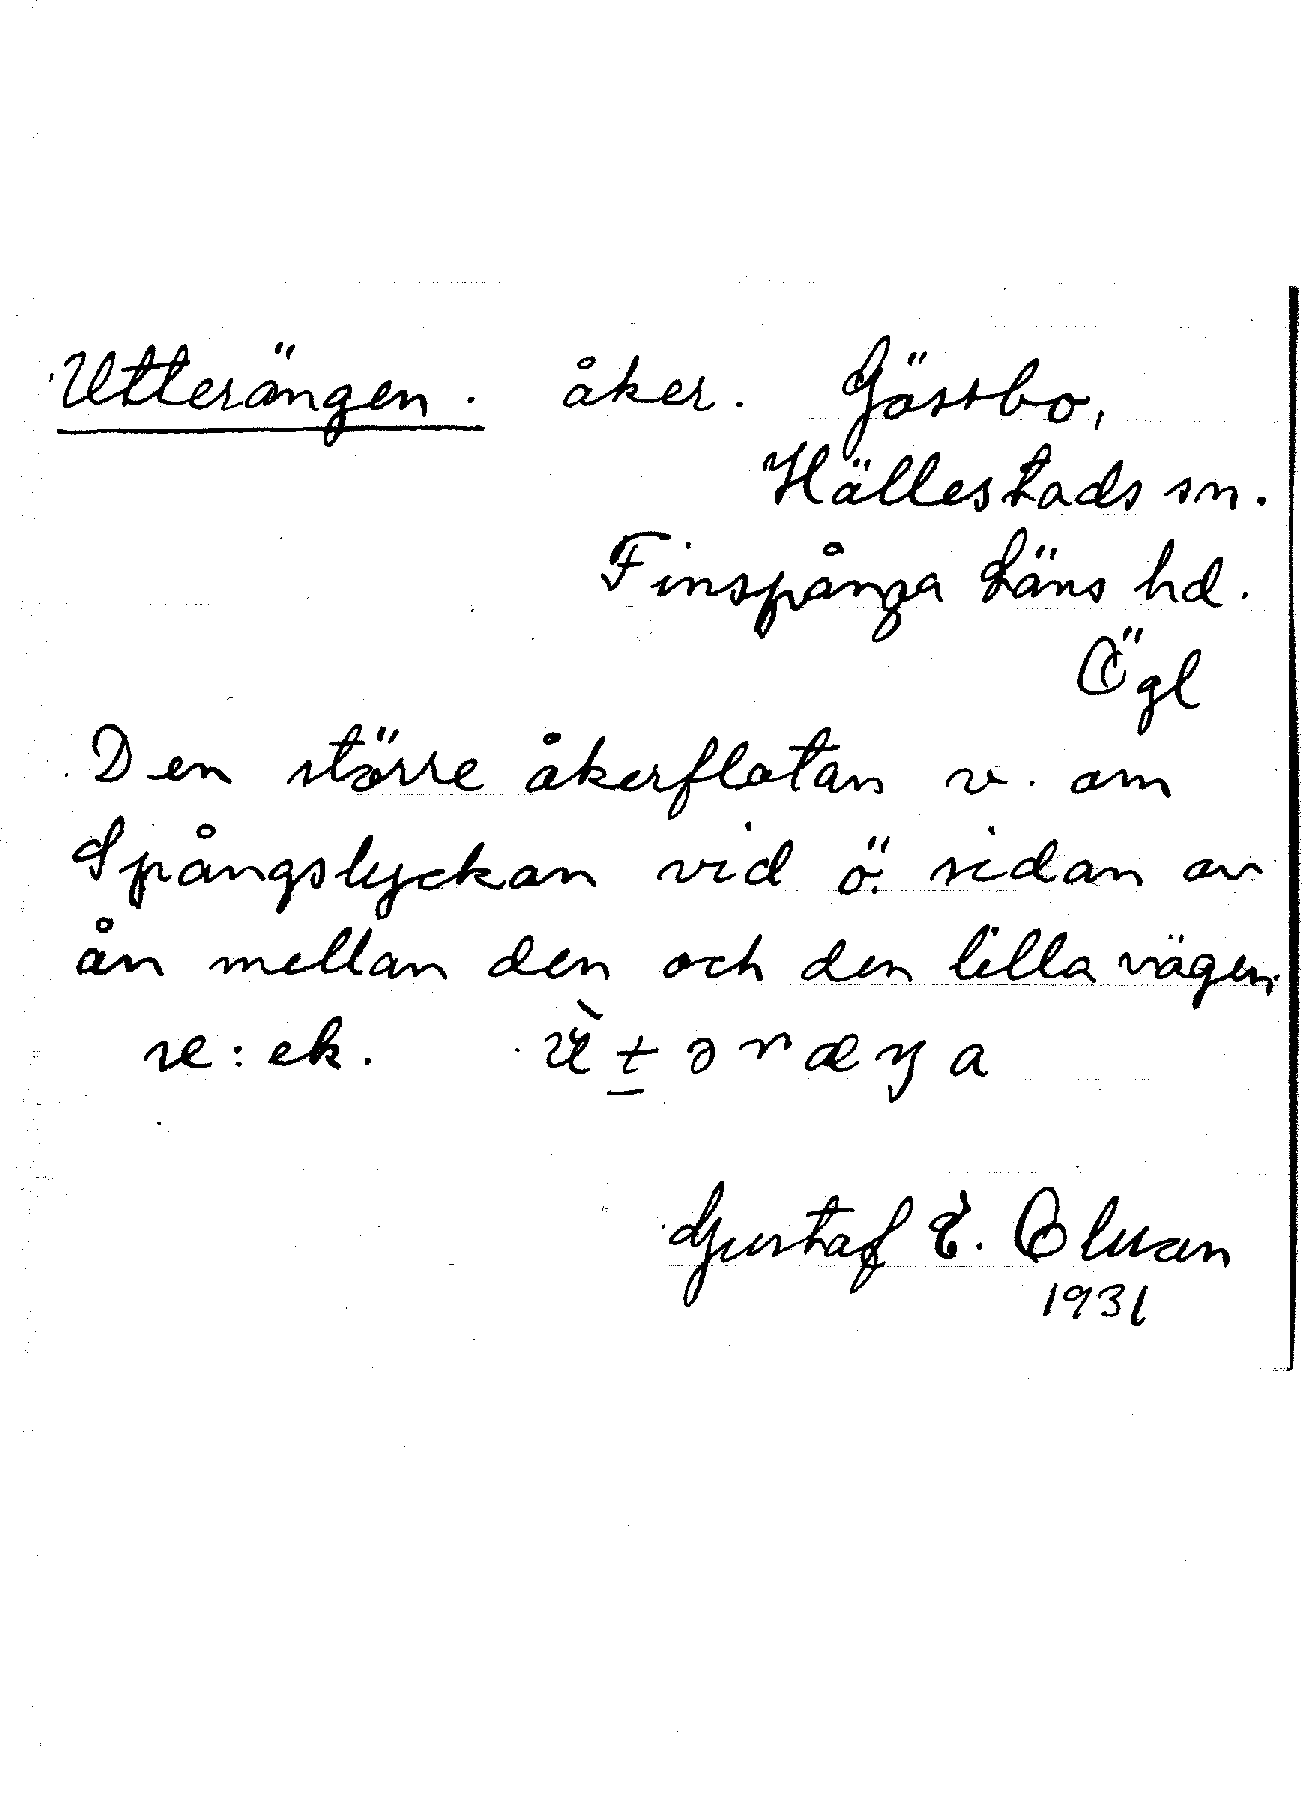 Utterängen. åker. Gössbo,
Hällestads sn.
Finspånga Läns hd.
Ögl
Den större åkerflatan v. om
Spångslyckan vid ö. sidan av
ån mellan den och den lilla vägen.
se: ek.
Gustaf E.
1931